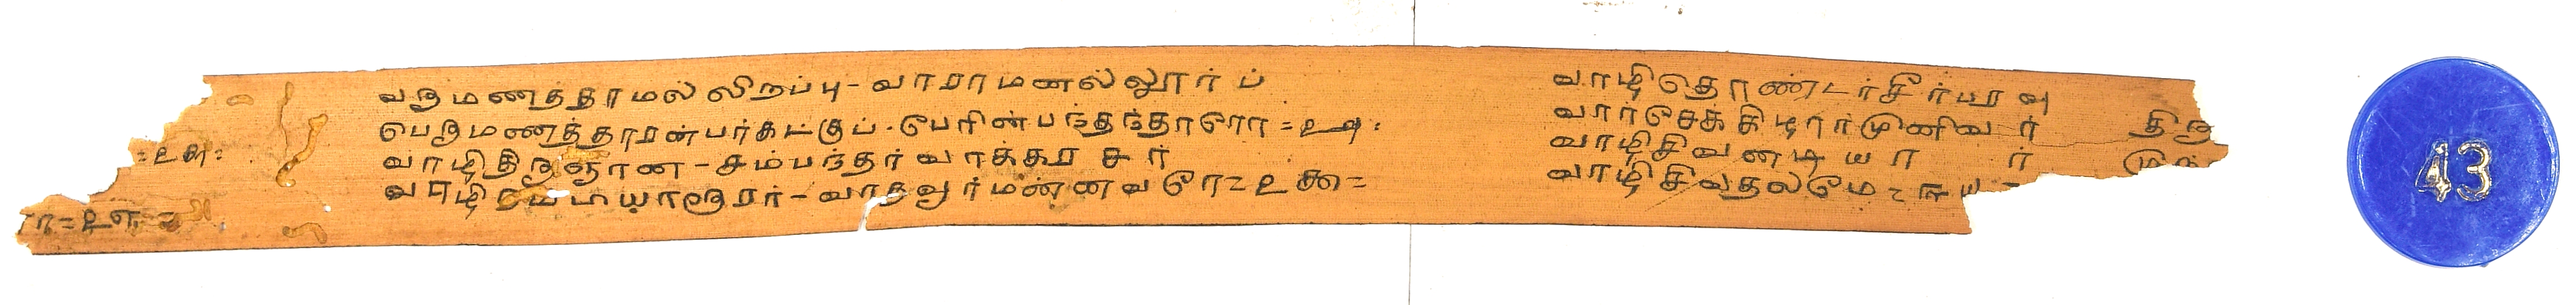 வருமணத்தாமல் லிறப்பு - வாராமனல்லூர் ப்
பெருமணத்தாரன்பர்கட்குப் - பேரின்பந்தந்தாரோ = ௨௮ =
வாழிதிருஞான - சம்பந்தர் வாக்கர சர்
வாழி யாரூரர் - வாதவூர்மன்னவரே = ௨௯ =
வாழிதொண்டர்சீர்பரவு
வார்சேக்கிழார்முனிவர்
வாழிசிவனடியார்
வாழிசிவதலமே = ௩௰ =
திரு
= ௨௬ =
= ௨௭ =
43